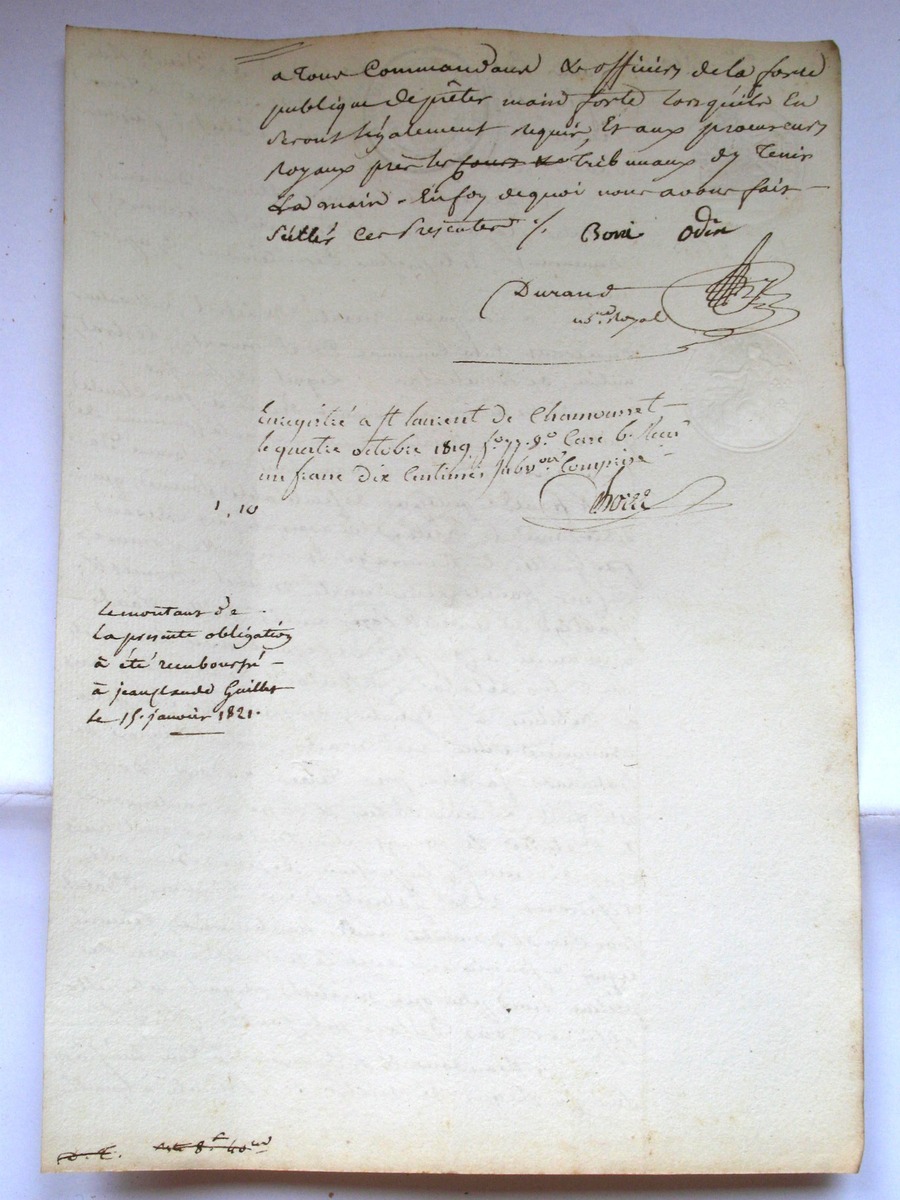 a tous Commandans & officiers de la force
publique de prêter main forte lorsquils En
seront légalement requis, Et aux procureurs
Royaux près les cours & tribunaux d'y tenir
La main - En foy de quoi nous avons fait
Sceller Ces Presentes ./. Odin
Durand
n.re Royal
Enregistré a St laurent de Chamousset
le quatre octobre 1819 fo. 77. vo. Case 6. Reçu
un franc dix Centimes Subv.on Comprise
1,10
Le montant de
La presente obligation
à été remboursé
à jean Claude Guillot
le 15. janvier 1821.